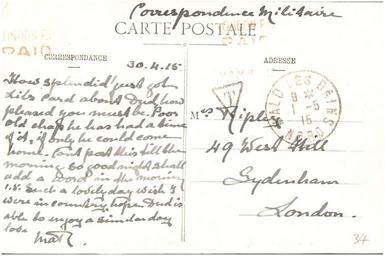 Correspondence Militaire
CARTE POSTALE
PAID
CORRESPONDANCE
ADRESSE
30.4.15
How splendid! just got
Lil's card about Dud, how
pleased you must be. Poor
old chap he has had a time
of it, if only he could come
home. Can't post this till the
morning, so good night, shall
add a word in the morning
1.5. Such a lovely day wish I
were in country, hope Dud is
able to enjoy a similar day
love
T
MALO LES BAINS
1-5
15
NORD
Mrs Ripley
49 West Hill
Sydenham
London.
34